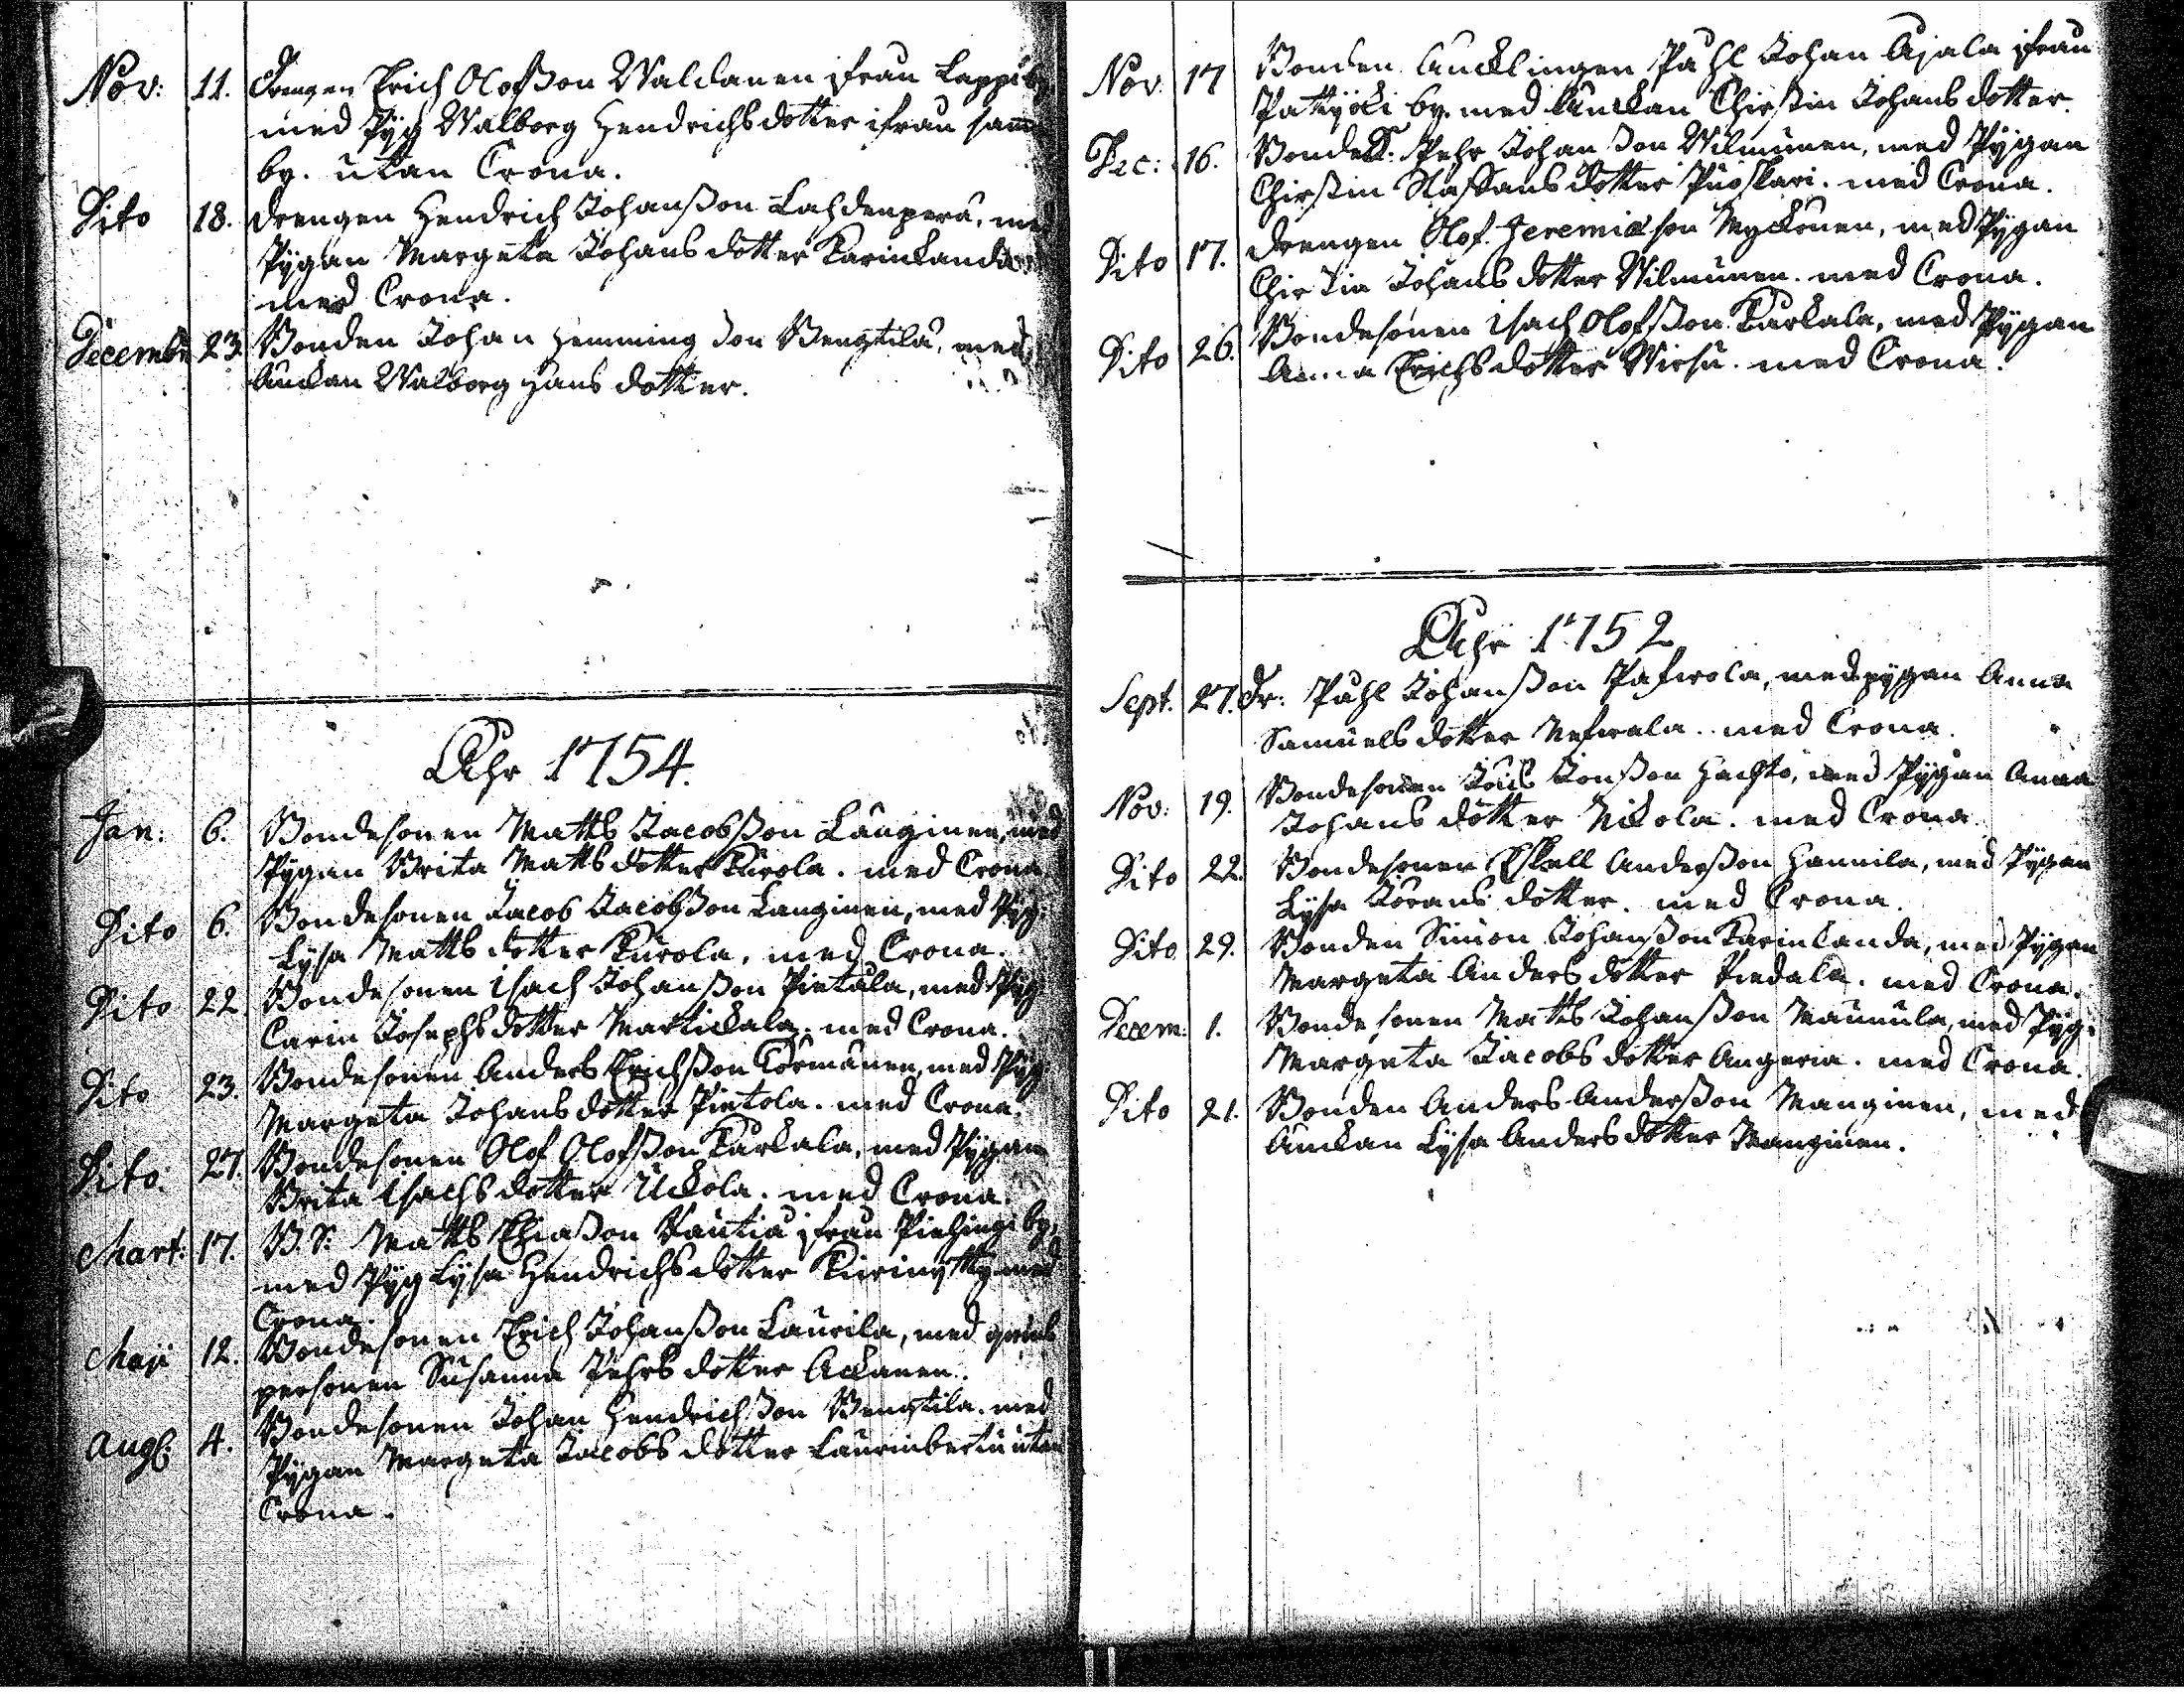 Nov: 11. Drengen Erich Olofsson Walckanen ifrån Lappi by
med Pyg Walborg Hendrichsdotter ifrån samma
by. utan Crona.
Dito 18. Drengen Hendrich Johansson Lahdenperä, med
Pygan Margeta Johansdotter Karinkanda
med Crona.
December 23. Bonden Johan Hemmingson Bengtilä, med
Änckan Walborg Hansdotter.
Åhr 1754.
Jan: 6. Bondesonen Matts Jacobsson Länginen, med
Pygan Brita Mattsdotter Kurola. med Crona
Dito 6. Bondesonen Jacob Jacobsson Langinen, med Pyg:
Lysa Mattsdotter Kurola, med Crona.
Dito 22. Bondesonen Isach Johansson Pietala, med Pyg
Carin Josephsdotter Martickala. med Crona.
Dito 23. Bondesonen Anders Erichsson Törmänen, med Pyg
Margeta Johansdotter Pietola. med Crona.
Dito. 27. Bondesonen Olof Olofsson Karkala, med Pygan
Brita Isachsdotter Uckola. med Crona.
Mart: 17. B. S: Matts Eliasson ifrån Piehingi by,
med Pyg Lysa Hendrichsdotter Kurinytty med
Crona.
Maji 12. Bondesonen Erich Johansson Laurila, med qwins
personen Susanna Pehrsdotter Ackanen.
Aug: 4. Bondesonen Johan Hendrichsson Bengtila. med
Pygan Margeta Jacobsdotter utan
Crona.
Nov: 17 Bonden Äncklingen Påhl Johan Ajala ifrån
Pattijocki by. med Änckan Chirstin Johansdotter.
Dec: 16. Bondes: Pehr Johansson Wilmunen, med Pygan
Chirstin Staffansdotter Puoskari. med Crona.
Dito 17. Drengen Olof Jeremiæson Myckänen, med Pygan
Chirstin Johansdotter Wilmunen. med Crona.
Dito 26. Bondesonen Isach Olofsson Karkala, med Pygan
Anna Erichsdotter Wirsu. med Crona.
Åhr 1752
Sept. 27. Dr: Påhl Johansson Pafwola, med pygan Anna
Samuelsdotter Nefwala. med Crona.
Nov: 19. Bondesonen Jöns Jonsson Hachto, med Pygan Anna
Johansdotter Nikola. med Crona
Dito 22. Bondesonen Eskell Andersson Hannila, med Pygan
Lysa Göransdotter. med Crona.
Dito 29. Bonden Simon Johansson Karinkanda, med Pygan
Margeta Andersdotter Piedala. med Crona.
Decem: 1. Bondesonen Matts Johansson Maunula, med Pyg:
Margeta Jacobsdotter Angeria. med Crona.
Dito 21. Bonden Anders Andersson Manginen, med
Änckan Lysa Andersdotter Manginen.